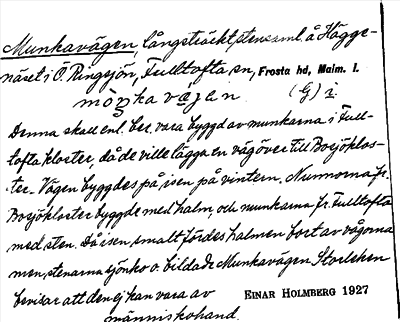 Munkavägen, långsträckt stensaml. å Hägge-
näset i Ö. Ringsjön, Fulltofta sn, Frosta hd, Malm. l.
mòŋkavä̀jan (G) i
Denna skall enl. ber. vara byggd av munkarna i Full-
tofta kloster, då de ville lägga en väg över till Bosjöklos-
ter. Vägen byggdes på isen på vintern. Nunnorna fr.
Bosjökloster byggde med halm och munkarna fr. Fulltofta
med sten. Då isen smalt fördes halmen bort av vågorna
men stenarna sjönko o. bildade Munkavägen. Storleken
bevisar att den ej kan vara av EINAR HOLMBERG 1927
människohand.